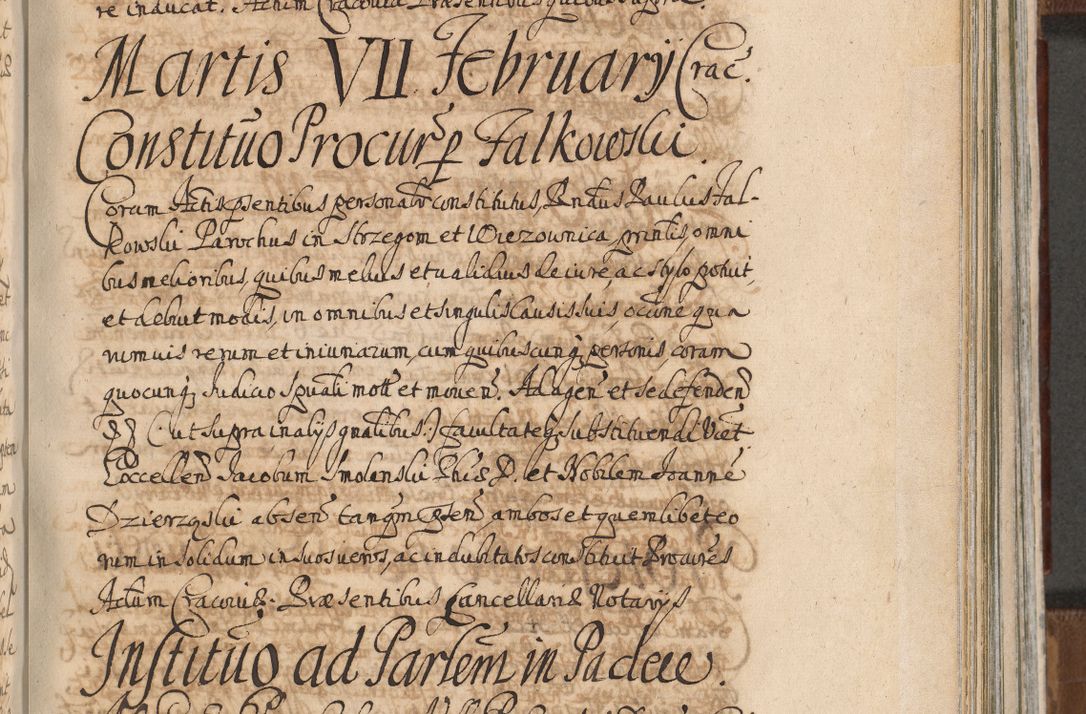 re inducat. Actum Cracoviæ Præsentibus quibus supra.
Martis VII February Crac̃.
Constitũo Procur̃ p Falkowski.
Coram Actis p̃sentibus personalr̃ constitutus, Rndus Paulus Fal-
kowski Parochus in Strzegom et Wiezownica, prinlis, omni
bus melioribus, quibus melius et validius de iure, ac stylo potuit,
et debuit modis, in omnibus et singulis causis suis, occ̃ne qua
rumvis rerum et iniuriarum, cum quibuscunq; personis, coram
quocunq; Judicio Spũali mot̃ et moven̄. Ad agen̄ et se defenden̄
(: ut supra in alijs gnãlibus :) facultateq; substituendi Vict̃
Excellen̄ Jacobum Smolenski Phiæ D. et Nobilem Joannẽ
Dzierzęski absen̄ tanq̃m p̃sen̄ ambos et quemlibet eo
rum in solidum in suos veros, ac indubitatos constituit Procures
Actum Cracoviæ. Præsentibus Cancellariæ Notarijs
Institũo ad Partem in Padeie.